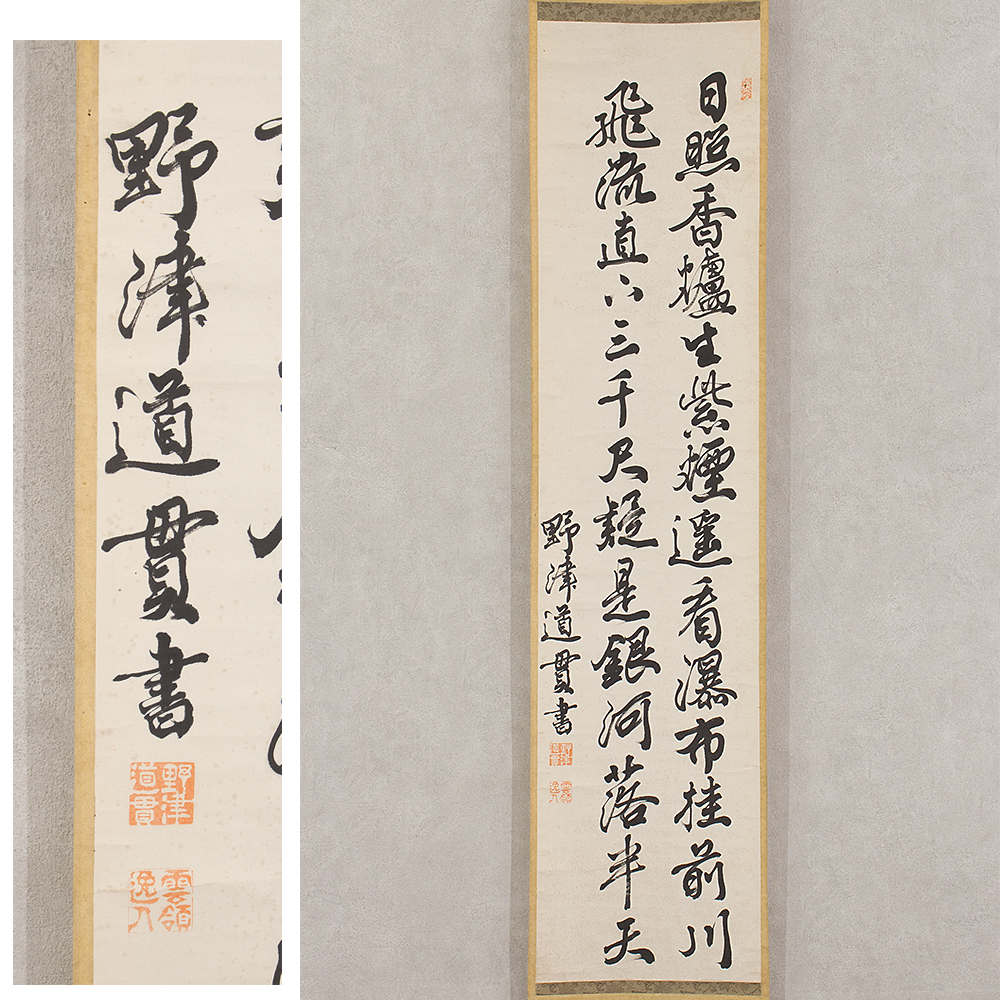 野津道貫書
野津道貫
雲嶺逸人
日照香爐生紫煙遥看瀑布挂前川
飛流直下三千尺疑是銀河落半天
野津道貫書
野津道貫
雲嶺逸人